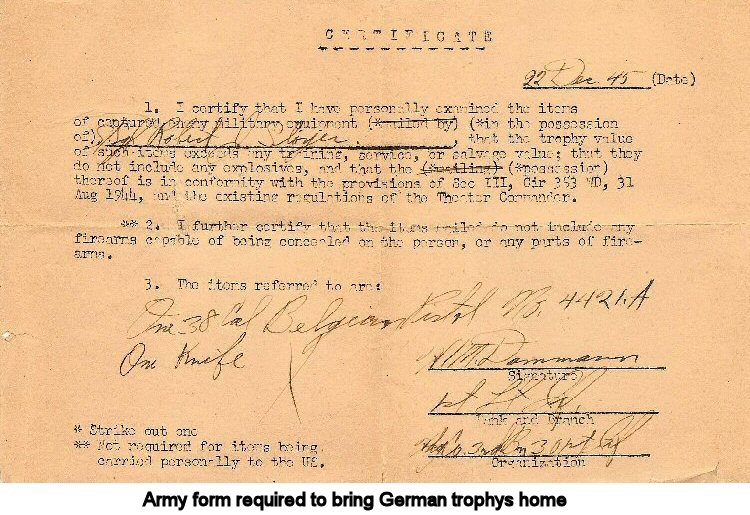 CERTIFICATE
22 Dec 45 (Date)
1. I certify that I have personally examined the items
of captured enemy military equipment (*mailed by) (*in the possession
of) Sgt Robert, that the trophy value
of such items exceeds any training, service, or salvage value; that they
do not include any explosives, and that the (*mailing) (*possession)
thereof is in conformity with the provisions of Sec III, Cir 353 WD, 31
Aug 1944, and the existing regulations of the Theater Commander.
** 2. I further certify that the items mailed do not include any
firearms capable of being concealed on the person, or any parts of fire-
arms.
3. The items referred to are:
One 38 Cal Belgian Pistol No. 4421.A
On Knife
Dammann
Signature
1st Lt
Rank and Branch
3rd Bn
Organization
* Strike out one
** Not required for items being
carried personally to the US.
Army form required to bring German trophys home